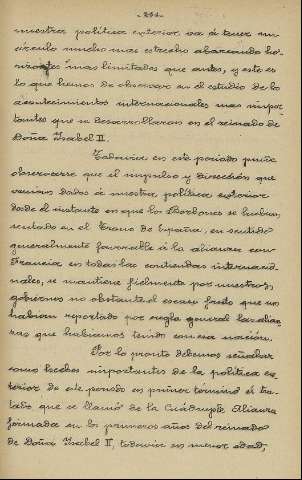 -244-
nuestra política exterior va á tener un
círculo mucho mas estrecho abarcando ho-
rizontes mas limitados que antes, y esto es
lo que hemos de observar en el estudio de los
acontecimientos internacionales mas impor-
tantes que se desarrollaron en el reinado de
Doña Isabel II.
Todavia en este periodo puede
observarse que el impulso y dirección que
vemos dados á nuestra política exterior
desde el instante en que los Borbones se hubieron
sentado en el Trono de España, en sentido
generalmente favorable á la alianza con
Francia en todas las contiendas internacio-
nales, se mantiene fielmente por nuestros
gobiernos no obstante el escaso fruto que nos
habian reportado por regla general las alian-
zas que habiamos tenido con esa nación.
Por lo pronto debemos señalar
como hechos importantes de la política ex-
terior de este periodo en primer término el tra-
tado que se llamó de la Cuádruple Alianza
formada en los primeros años del reinado
de Doña Isabel II, todavia en menor edad,